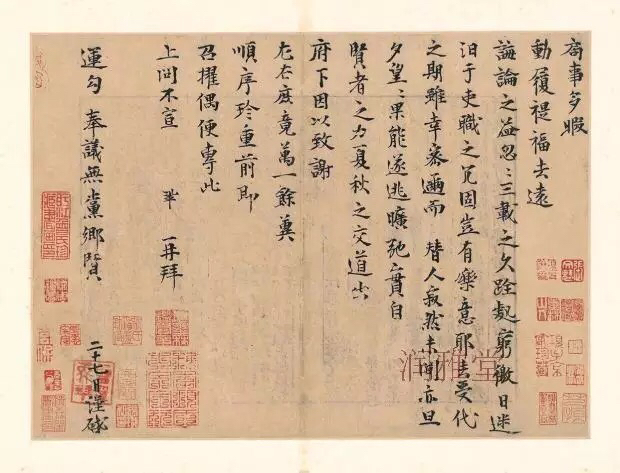 局事多暇
動履禔福去遠
誨論之益忽〻三載之久跧處窮徼日迷
汩于吏職之冗固豈有樂意耶去受代
之期雖幸密邇而替人寂然未聞亦旦
夕望〻果能遂逃曠弛實自
賢者之力夏秋之交道出
府下因以致謝
左右庶竟萬一餘冀
順序珍重前即
召擢偶便專此
上問不宣 鞏再拜
運勾奉議無黨鄉賢 二十七日謹啟
雅堂